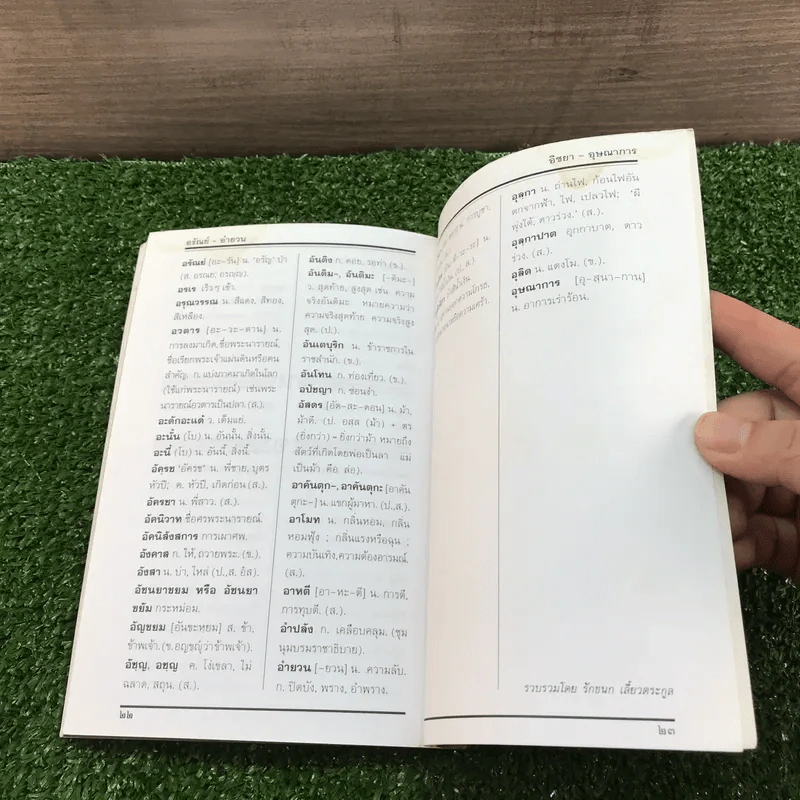 อรัณย์ - อำยวน
อรัณย์ [อะ-รัน] น. 'อรัญ' ป่า
(ส. อรณย; อรญฺญ).
อรเร เร็วๆ เข้า.
อรุณวรรณ น. สีแดง, สีทอง,
สีเหลือง.
อวตาร [อะ-วะ-ตาน] น.
การลงมาเกิด,ชื่อพระนารายณ์,
ชื่อเรียกพระเจ้าแผ่นดินหรือคน
สำคัญ. ก. แบ่งภาคมาเกิดในโลก
(ใช้แก่พระนารายณ์) เช่นพระ
นารายณ์อวตารเป็นปลา. (ส.).
อะดักอะแด้ ว. เต็มแย่.
อะนั้น (โบ) น. อันนั้น, สิ่งนั้น.
อะนี้ (โบ) น. อันนี้, สิ่งนี้.
อัครช 'อัคฺรช' น. พี่ชาย, บุตร
หัวปี; ค. หัวปี, เกิดก่อน (ส.).
อัครชา น. พี่สาว. (ส.).
อัคนิวาท ชื่อศรพระนารายณ์.
อัคนิสังสการ การเผาศพ.
อังคาส ก. ให้, ถวายพระ. (ข.).
อังสา น. บ่า, ไหล่ (ป.,ส. อํส).
อัชนยาขยม หรือ อัชนยา
ขยัม กระหม่อม.
อัญขยม [อันขะหยม] ส. ข้า,
ข้าพเจ้า.(ข.อญฺขฺญุํว่าข้าพเจ้า).
อัชฺญ, อชฺญ ค. โง่เขลา, ไม่
ฉลาด, สถุน. (ส.).
อันติง ก. คอย, รอท่า (ข.).
อันติม-, อันติมะ [-ติมะ-]
ว. สุดท้าย, สูงสุด เช่น ความ
จริงอันติมะ หมายความว่า
ความจริงสุดท้าย ความจริงสูง
สุด. (ป.).
อันเตบุริก น. ข้าราชการใน
ราชสำนัก. (ข.).
อันโทน ก. ท่องเที่ยว. (ข.).
อปัชญา ก. ซ่อนงำ.
อัสดร [อัด-สะ-ดอน] น. ม้า,
ม้าดี. (ป. อสฺส (ม้า) + ตร
(ยิ่งกว่า) = ยิ่งกว่าม้า หมายถึง
สัตว์ที่เกิดโดยพ่อเป็นลา แม่
เป็นม้า คือ ล่อ).
อาคันตุก-, อาคันตุกะ [อาคัน
ตุกะ-] น. แขกผู้มาหา. (ป.,ส.).
อาโมท น. กลิ่นหอม, กลิ่น
หอมฟุ้ง ; กลิ่นแรงหรือฉุน ;
ความบันเทิง,ความต้องอารมณ์.
(ส.).
อาหตี [อา-หะ-ตี] น. การตี,
การทุบตี. (ส.).
อำปลัง ก. เคลือบคลุม. (ชุม
นุมบรมราชาธิบาย).
อำยวน [-ยวน] น. ความลับ.
ก. ปิดบัง, พราง, อำพราง.
๒๒
อิชยา - อุษณาการ
การบูชา.
อุลฺกา น. ถ่านไฟ, ก้อนไฟอัน
ตกจากฟ้า, ไฟ, เปลวไฟ; 'ผี
พุ่งใต้, ดาวร่วง.' (ส.).
อุลฺกาปาต อุกกาบาต, ดาว
ร่วง. (ส.).
อุลิต น. แตงโม. (ข.).
อุษณาการ [อุ-สนา-กาน]
น. อาการเร่าร้อน.
รวบรวมโดย รักชนก เลี้ยวตระกูล
๒๓